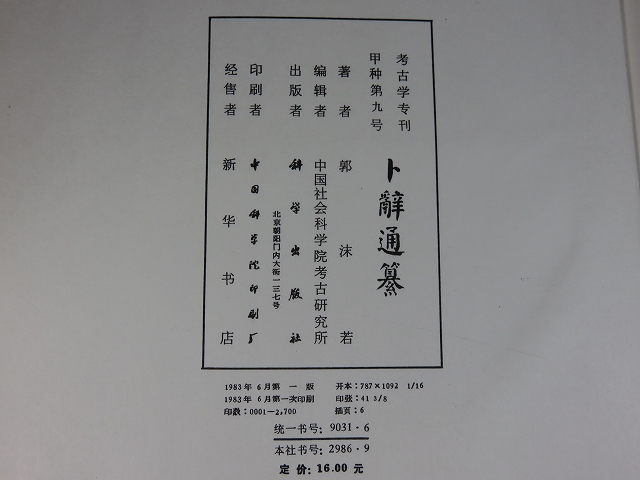 考古学专刊
甲种第九号
卜辭通纂
著者 郭沫若
编辑者 中国社会科学院考古研究所
出版者 科学出版社
北京朝阳门内大街一三七号
印刷者 中国科学院印刷厂
经售者 新华书店
1983年6月第一版 开本:787×1092 1/16
1983年6月第一次印刷 印张:41 3/8
印数:0001—2,700 插页:6
统一书号:9031·6
本社书号:2986·9
定价:16.00元